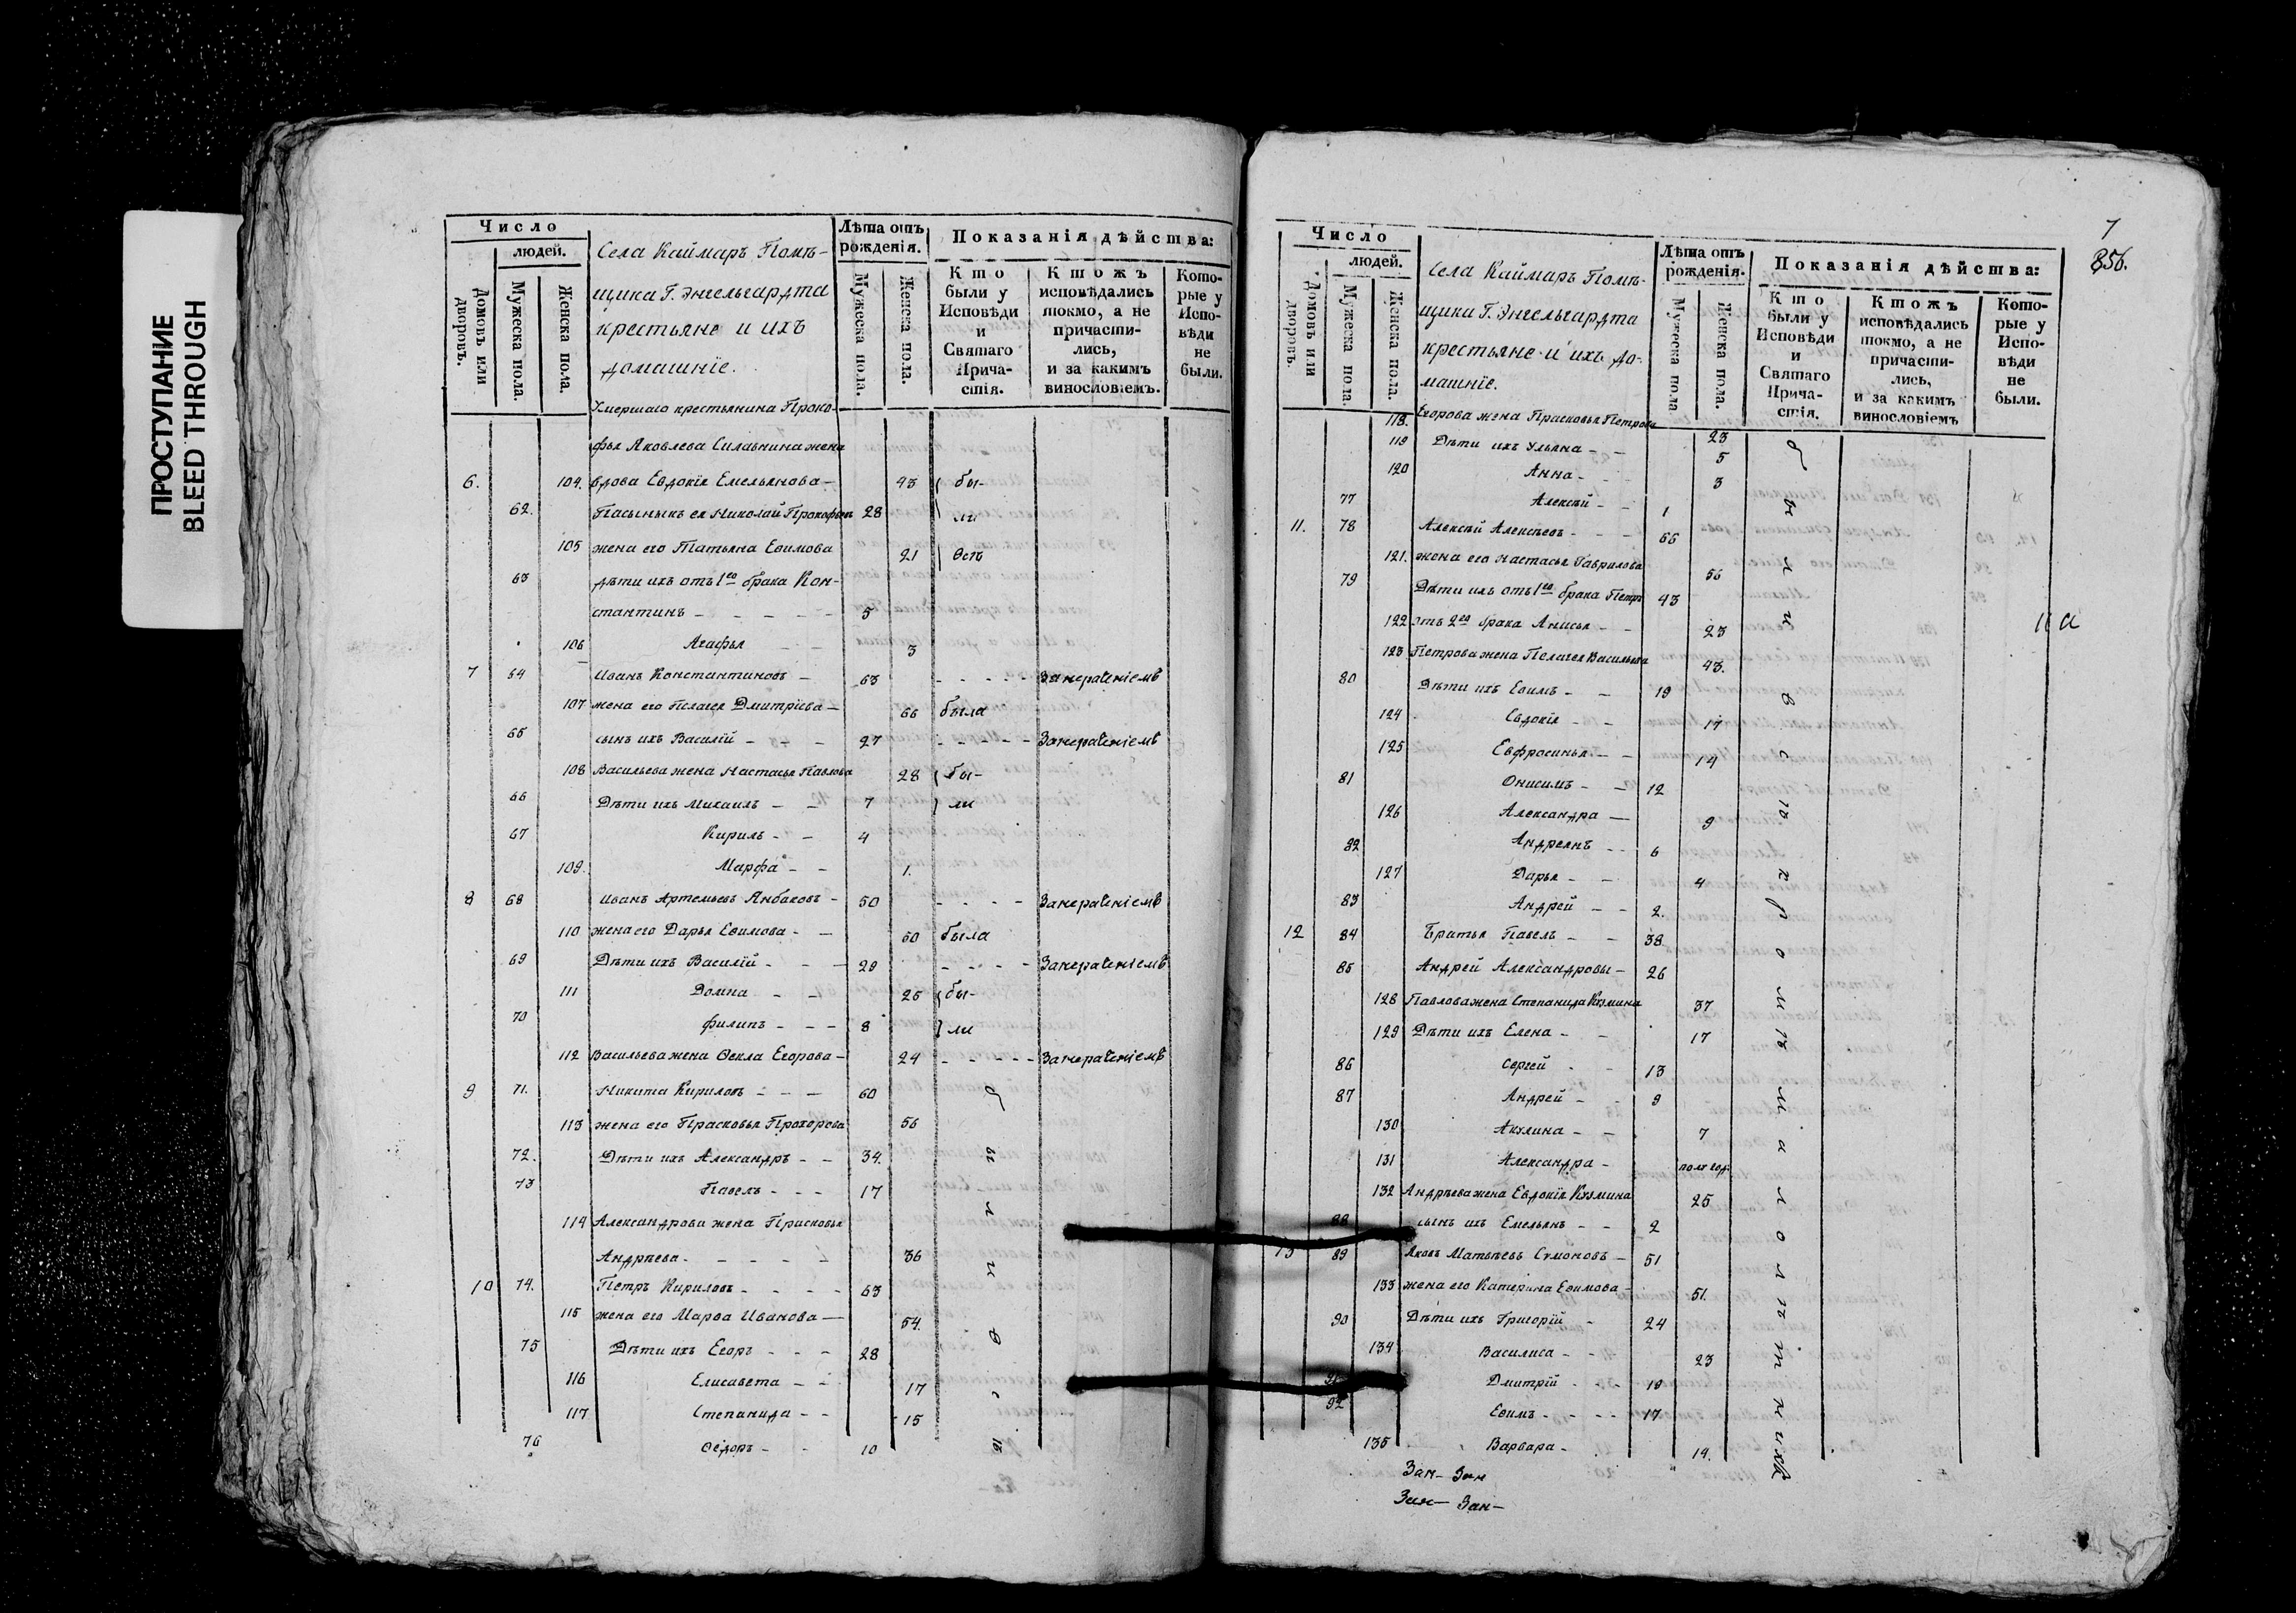 ПРОСТУПАНИЕ
BLEED THROUGH
Число
людей.
Домовъ или дворовъ.
Мужеска пола.
Женска пола.
Села Каймаръ Помѣ-
щика Г. Энгельгардта
крестьяне и ихъ
домашніе.
Лѣта отъ рожденія.
Мужеска пола.
Женска пола.
Показанія дѣйства:
Кто были у Исповѣди и Святаго Причастія.
Ктожъ исповѣдались токмо, а не причастились, и за какимъ винословіемъ.
Которые у Исповѣди не были.
Умершаго крестьянина Проко-
фья Яковлева Силавнина жена
6. 104. вдова Евдокія Емельянова — 43 бы-
62. Пасыныкъ ея Николай Прокофьевъ 28 ли
105 жена его Татьяна Еѳимова 21 Всѣ
63 дѣти ихъ отъ 1го брака Кон-
стантинъ — 5
106 Агафья 3
7 64 Иванъ Константиновъ — 63 - - - - Занерадѣніемъ
107 жена его Пелагея Дмитріева — 66 была
65 сынъ ихъ Василій - - - 27 - - - - Занерадѣніемъ
108 Васильева жена Настасья Павлова 28 бы-
66 Дѣти ихъ Михаилъ — — 7 ли
67 Кирилъ - - 4
109. Марфа - - 1.
8 68 Иванъ Артемьевъ Янбаковъ - 50 - - - - Занерадѣніемъ
110 жена его Дарья Еѳимова - - 50 была
69 Дѣти ихъ Василій - - - 29 - - - - Занерадѣніемъ
111 Домна - - 25 бы-
70 Филипъ - - - 8 ли
112 Васильева жена Ѳекла Егорова — 24 - - - - Занерадѣніемъ
9 71. Никита Кириловъ - - — 60 б
113 жена его Прасковья Прохорова 56
72. Дѣти ихъ Александръ - - 34. ы
73 Павелъ - - - 17
114 Александрова жена Прасковья л
Андрѣева - - - - - 36
10 74. Петръ Кириловъ - - - - 63 и
115 жена его Марѳа Иванова — 54.
75 Дѣти ихъ Егоръ - - - 28 в
116 Елисавета - - 17 с
117 Степанида - - 15
76 Ѳедоръ - - 10 ѣ
Число
людей.
Домовъ или дворовъ.
Мужеска пола.
Женска пола.
Села Каймаръ Помѣ-
щика Г. Энгельгардта
крестьяне и ихъ до-
машніе.
Лѣта отъ рожденія.
Мужеска пола
Женска пола.
Показанія дѣйства:
Кто были у Исповѣди и Святаго Причастія.
Ктожъ исповѣдались токмо, а не причастились, и за какимъ винословіемъ
Которые у Исповѣди не были.
7
856.
11 а
118. Егорова жена Прасковья Петрова 23
119 Дѣти ихъ Ульяна - - 5
120 Анна - - 3
77 Алексѣй - - 1
11. 78 Алексѣй Алексѣевъ - - - 66
121. жена его Настасья Гаврилова 56
79 Дѣти ихъ отъ 1го брака Петръ 43
122 отъ 2го брака Анисья - - 23
123 Петрова жена Пелагея Васильева 43.
80 Дѣти ихъ Еѳимъ - - 19
124 Евдокія - - 17
125 Евфросинья - - 14
81 Онисимъ - - 12
126 Александра — 9
82 Андреянъ - - 6
127 Дарья - - 4
83 Андрей - - 2.
12 84 Братья Павелъ - - 38
85 Андрей Александровы - 26
128 Павлова жена Степанида Кузмина 37
129 Дѣти ихъ Елена - - 17
86 Сергей - - 13
87 Андрей - - 9
130 Акулина - - 7
131 Александра - полгод.
132 Андрѣева жена Евдокія Кузмина 25
88 сынъ ихъ Емельянъ - - 2
13 89 Яковъ Матвѣевъ Сумоновъ - 51
133 жена его Катерина Еѳимова - 51.
90 Дѣти ихъ Григорій - 24
134 Василиса - - 23
91 Дмитрій - - - 19
92 Еѳимъ - - - - 17
135 Варвара - 14.
были всѣ кромѣ малолѣтнихъ
Зан- Зан
Зан- Зан-